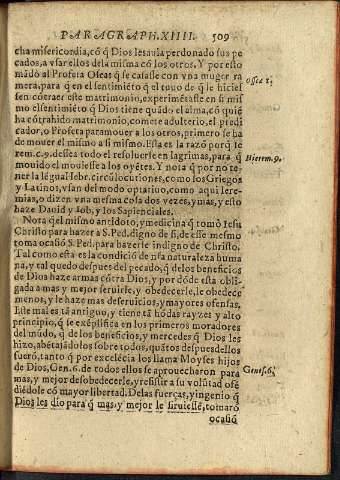 PARAGRAPH. XIIII. 509
cha misericordia, cõ q̃ Dios les auia perdonado sus pe
cados, a vsar ellos dela misma cõ los otros. Y por esto
mãdó al Profeta Oseas q̃ se casasse con vna muger ra
mera, para q̃ en el sentimiẽto q̃ el tuuo de q̃ le hicies
sen cõtraer este matrimonio, experimẽtasse en si mis
mo el sentimiẽto q̃ Dios tiene quãdo el alma, cõ quiẽ
ha cõtrahido matrimonio, comete adulterio, el predi
cador, o Profeta para mouer a los otros, primero se ha
de mouer el mismo a si mismo. Esta es la razõ porq̃ Ie
rem. c. 9. dessea todo el resoluerse en lagrimas, para q̃
mouido el mouiesse a los oyẽtes. Y nota q̃ por no te-
ner la lẽgua Hebr. circũlocutiones, como los Griegos
y Latinos, vsan del modo optatiuo, como aqui Iere-
mias, o dizen vna mesma cosa dos vezes, y mas, y esto
haze Dauid y Iob, y los Sapienciales.
Nota q̃ el mismo antidoto, y medicina q̃ tomó Iesu
Christo para hazer a S. Ped. digno de si, de esse mesmo
toma ocasió S. Ped. para hazerse indigno de Christo.
Tal como esta es la condició de nr̃a naturaleza huma
na, y tal quedo despues del pecado, q̃ de los beneficios
de Dios haze armas cõtra Dios, y por dõde esta obli-
gada a mas y mejor seruirle, y obedecerle, le obedece
menos, y le haze mas deseruicios, y mayores ofensas.
Este mal es tã antiguo, y tiene tã hõdas rayzes y alto
principio, q̃ se exẽplifica en los primeros moradores
del mũdo, q̃ de los beneficios, y mercedes q̃ Dios les
hizo, abẽtajãdolos sobre todos, quãtos despues dellos
fuerõ, tanto q̃ por excelẽcia los llama Moyses hijos
de Dios, Gen. 6. de todos ellos se aprouecharon para
mas, y mejor desobedecerle, y resistir a su volũtad ofẽ
diẽdole cõ mayor libertad. De las fuerças, y ingenio q̃
Dios les dio para q̃ mas, y mejor le siruiessẽ, tomarõ
ocasiõ
Oseæ 1.
Hierem. 9.
Genes. 6.